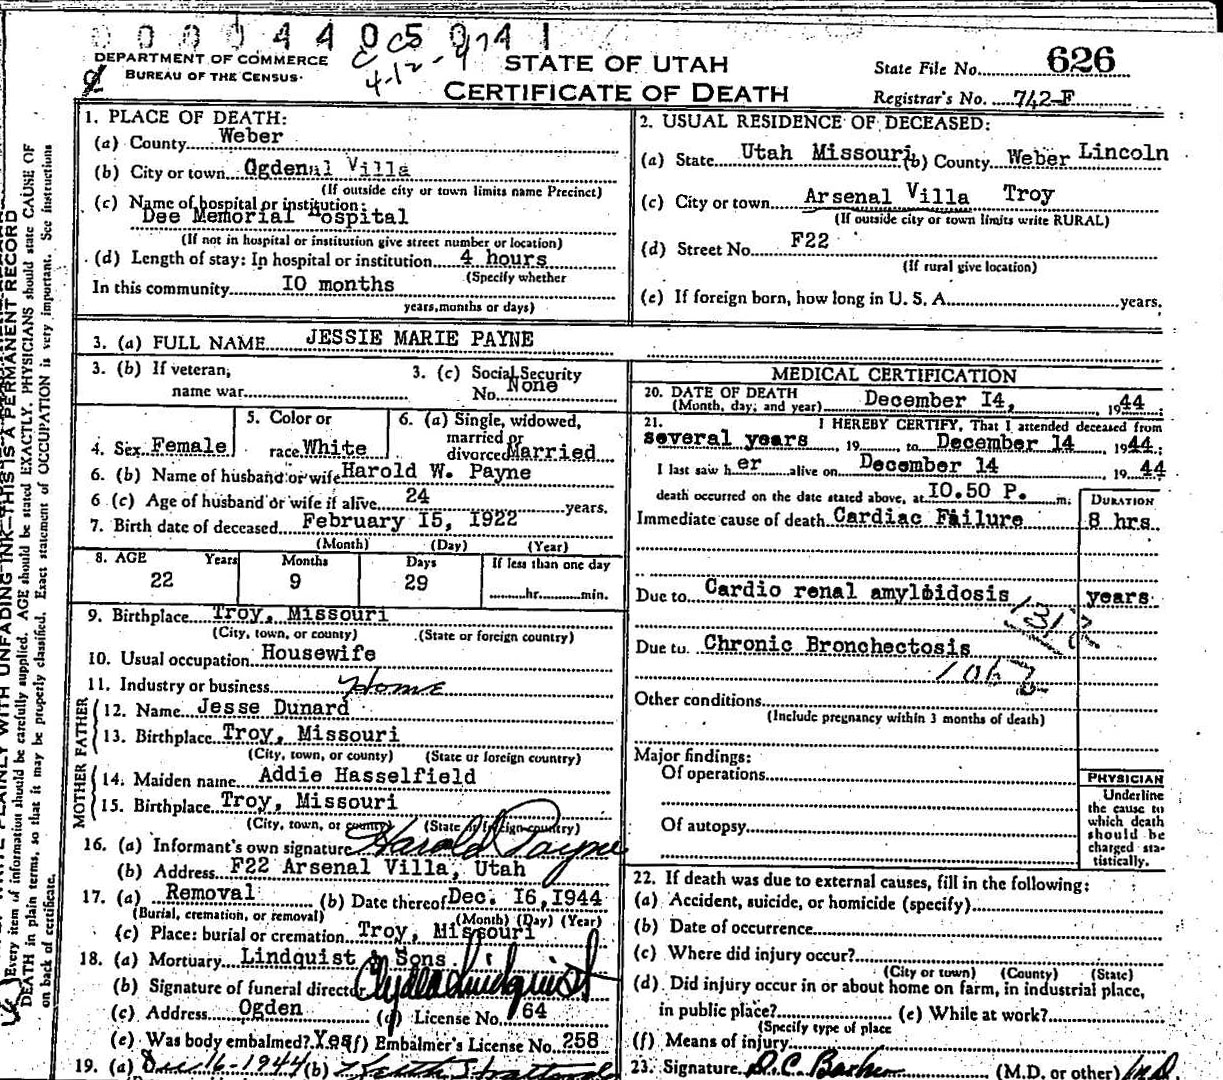 0 0 0 0 4 4 0 5 0 4 1
DEPARTMENT OF COMMERCE
BUREAU OF THE CENSUS
4-12-47
STATE OF UTAH
CERTIFICATE OF DEATH
State File No. 626
Registrar's No. 742-F
1. PLACE OF DEATH:
(a) County Weber
(b) City or town Ogden Villa
(If outside city or town limits name Precinct)
(c) Name of hospital or institution:
Dee Memorial Hospital
(If not in hospital or institution give street number or location)
(d) Length of stay: In hospital or institution 4 hours
(Specify whether
In this community 10 months
years, months or days)
2. USUAL RESIDENCE OF DECEASED:
(a) State Utah Missouri (b) County Weber Lincoln
(c) City or town Arsenal Villa Troy
(If outside city or town limits write RURAL)
(d) Street No. F22
(If rural give location)
(e) If foreign born, how long in U. S. A. years.
3. (a) FULL NAME JESSIE MARIE PAYNE
3. (b) If veteran, name war
3. (c) Social Security No. None
4. Sex Female
5. Color or race White
6. (a) Single, widowed, married or divorced Married
6. (b) Name of husband or wife Harold W. Payne
6 (c) Age of husband or wife if alive 24 years.
7. Birth date of deceased February 15, 1922
(Month) (Day) (Year)
8. AGE Years Months Days If less than one day
22 9 29 hr. min.
9. Birthplace Troy, Missouri
(City, town, or county) (State or foreign country)
10. Usual occupation Housewife
11. Industry or business Home
FATHER
12. Name Jesse Dunard
13. Birthplace Troy, Missouri
(City, town, or county) (State or foreign country)
MOTHER
14. Maiden name Addie Hasselfield
15. Birthplace Troy, Missouri
(City, town, or county) (State or foreign country)
16. (a) Informant's own signature Harold Payne
(b) Address F22 Arsenal Villa, Utah
17. (a) Removal (b) Date thereof Dec. 16, 1944
(Burial, cremation, or removal) (Month) (Day) (Year)
(c) Place: burial or cremation Troy, Missouri
18. (a) Mortuary Lindquist & Sons
(b) Signature of funeral director Clyde Lindquist
(c) Address Ogden (d) License No. 64
(e) Was body embalmed? Yes (f) Embalmer's License No. 258
19. (a) Dec 16-1944 (b)
MEDICAL CERTIFICATION
20. DATE OF DEATH
(Month, day, and year) December 14, 1944
21. I HEREBY CERTIFY, That I attended deceased from
several years 19 to December 14 1944
I last saw her alive on December 14 1944
death occurred on the date stated above, at 10.50 P. m. DURATION
Immediate cause of death Cardiac Failure 8 hrs.
Due to Cardio renal amyloidosis years
Due to Chronic Bronchectosis
Other conditions
(Include pregnancy within 3 months of death)
Major findings:
Of operations
Of autopsy
PHYSICIAN
Underline
the cause to
which death
should be
charged sta-
tistically.
22. If death was due to external causes, fill in the following:
(a) Accident, suicide, or homicide (specify)
(b) Date of occurrence
(c) Where did injury occur?
(City or town) (County) (State)
(d) Did injury occur in or about home on farm, in industrial place,
in public place? (e) While at work?
(Specify type of place
(f) Means of injury
23. Signature (M.D. or other) M.D.
WRITE PLAINLY WITH UNFADING INK—THIS IS A PERMANENT RECORD
Every item of information should be carefully supplied. AGE should be stated EXACTLY. PHYSICIANS should state CAUSE OF
DEATH in plain terms, so that it may be properly classified. Exact statement of OCCUPATION is very important. See instructions
on back of certificate.